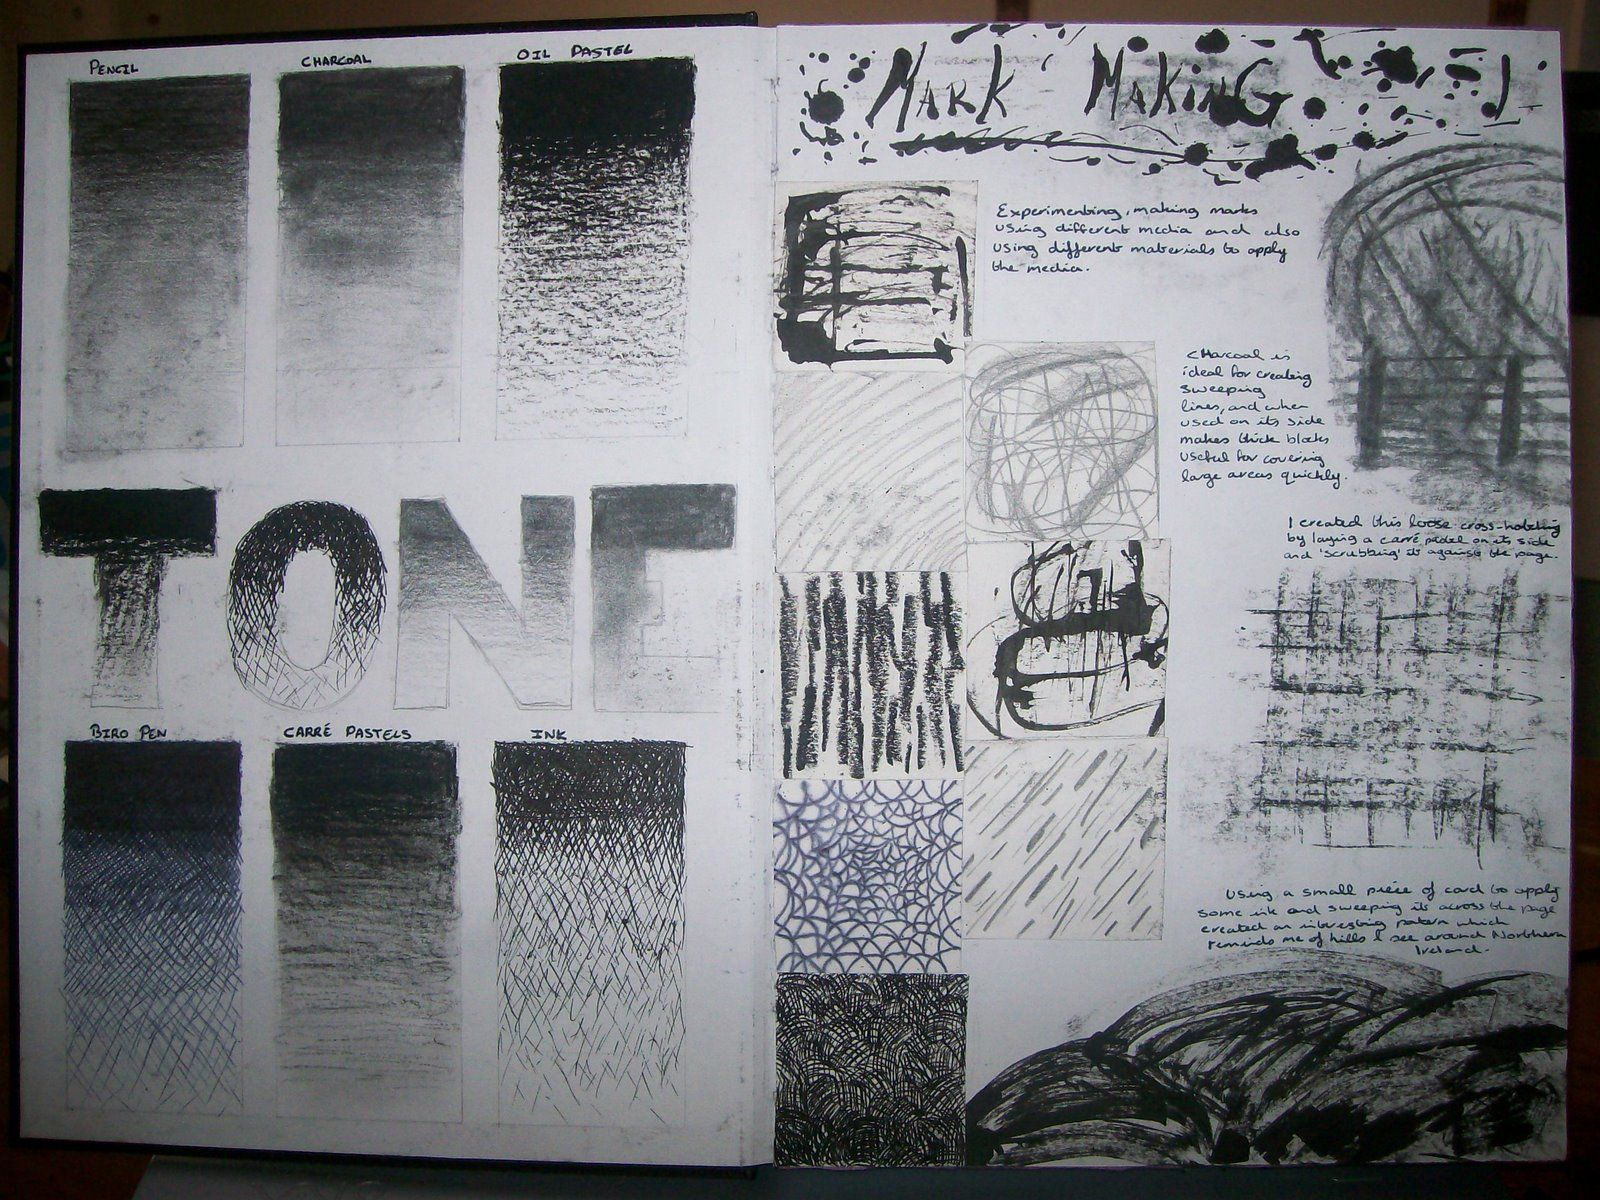 PENCIL
CHARCOAL
OIL PASTEL
TONE
BIRO PEN
CARRÉ PASTELS
INK
MARK MAKING
Experimenting, making marks
using different media and also
using different materials to apply
the media.
CHarcoal is
ideal for creating
sweeping
lines, and when
used on its side
makes thick blocks
useful for covering
large areas quickly.
I created this loose cross-hatching
by laying a carré pastel on its side
and 'scrubbing' it against the page.
Using a small piece of card to apply
some ink and sweeping it across the page
created an interesting pattern which
reminds me of hills I see around Northern
Ireland.